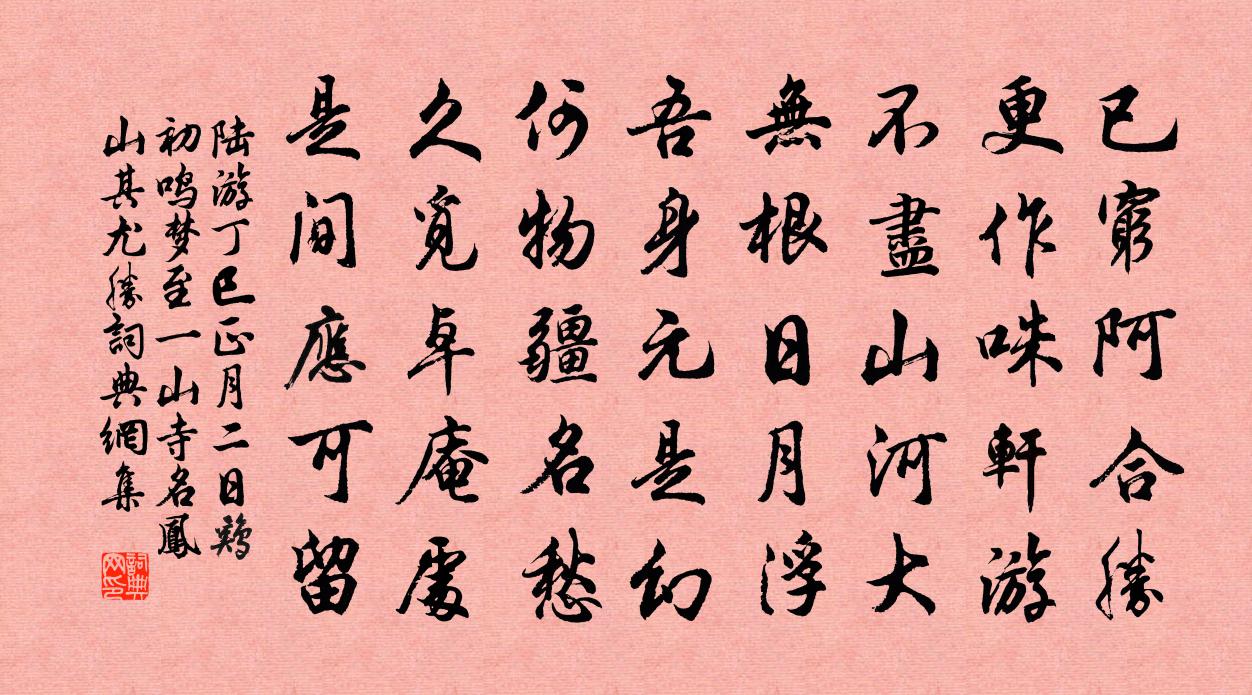 已窮阿合勝
更作咮軒游
不盡山河大
無根日月浮
吾身元是幻
何物疆名愁
久覓卓庵處
是間應可留
陆游丁巳正月二日鷄
初鸣梦至一山寺名鳳
山其尤勝詞典網集
詞典
网印